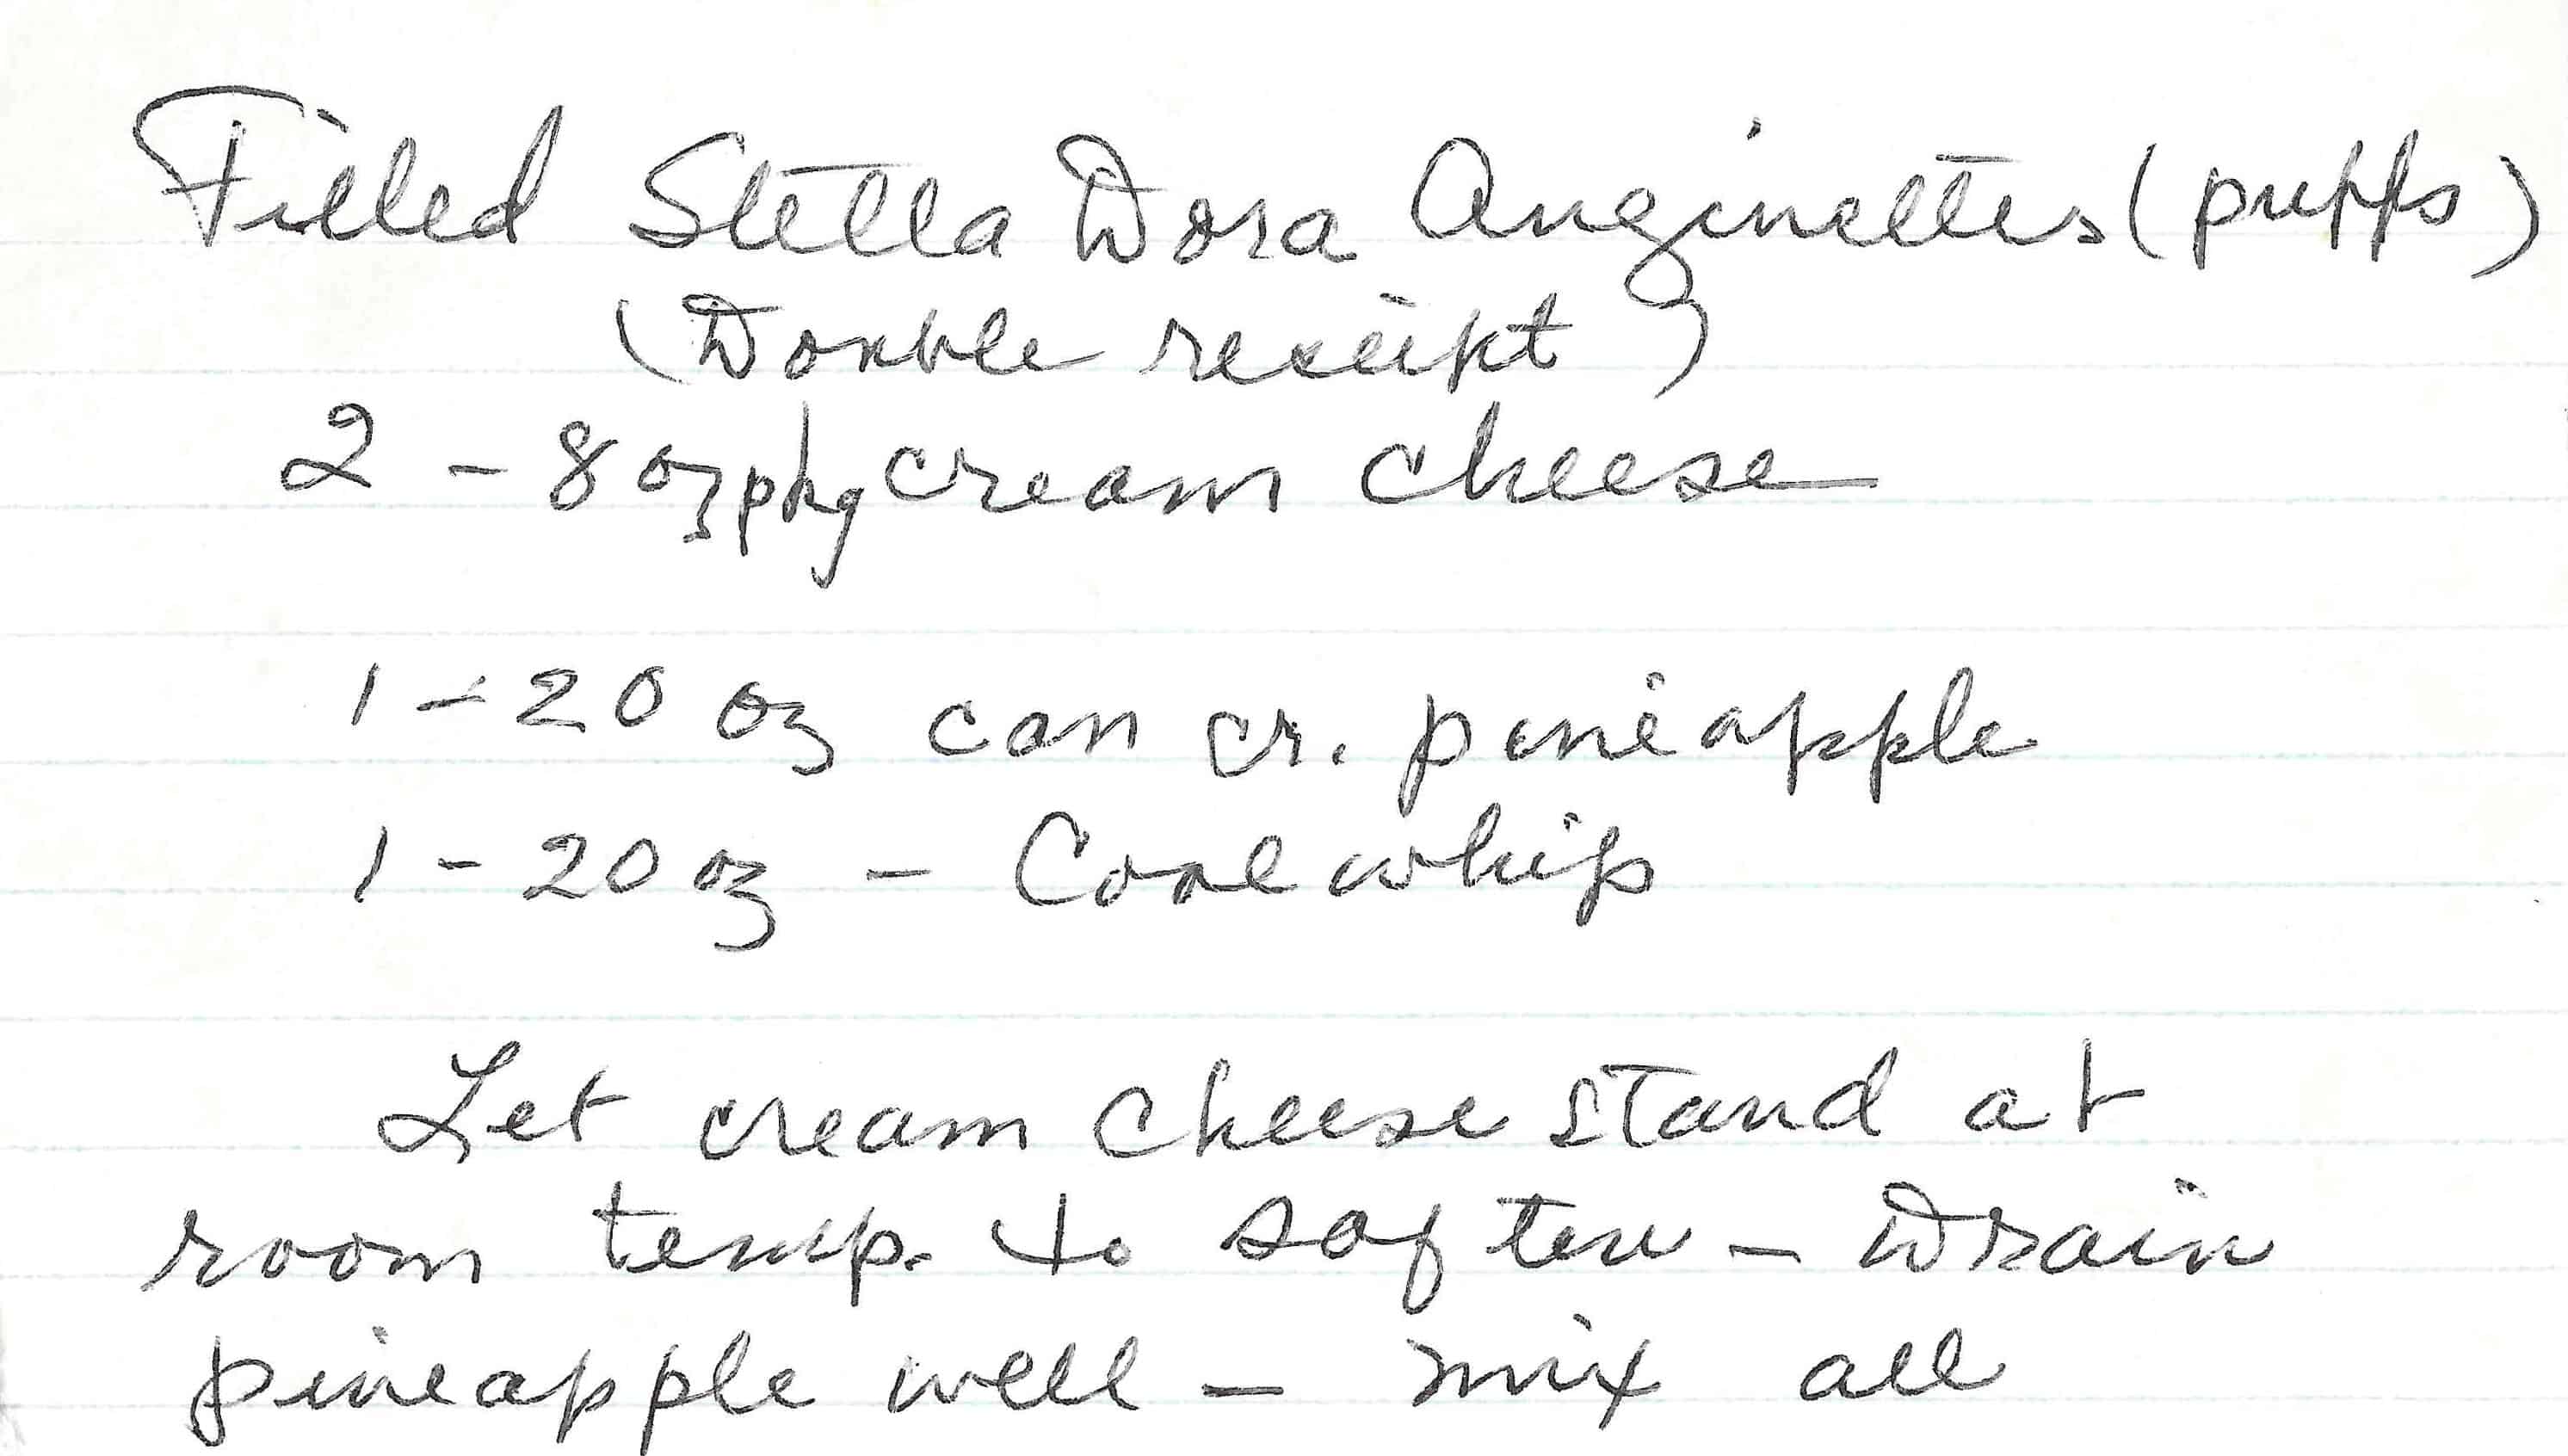 Filled Stella Dora Anginettes (puffs)
(Double receipt)
2 - 8 oz pkg cream cheese
1 - 20 oz can cr. pineapple
1 - 20 oz - Cool whip
Let cream cheese stand at
room temp. to soften - Drain
pineapple well - mix all